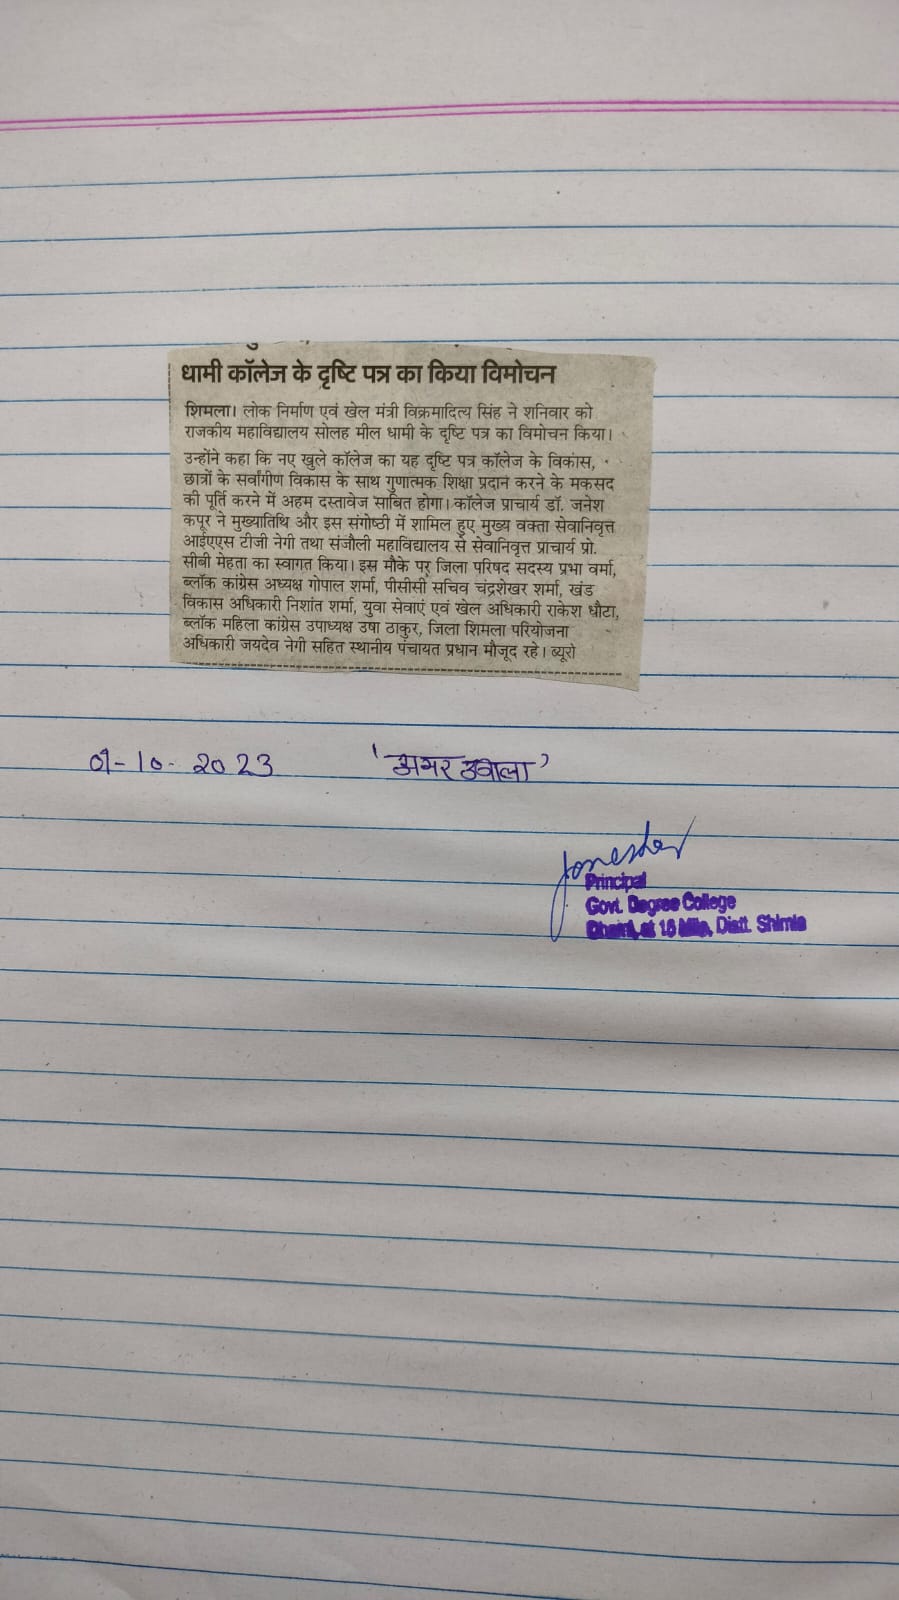 धामी कॉलेज के दृष्टि पत्र का किया विमोचन
शिमला। लोक निर्माण एवं खेल मंत्री विक्रमादित्य सिंह ने शनिवार को
राजकीय महाविद्यालय सोलह मील धामी के दृष्टि पत्र का विमोचन किया।
उन्होंने कहा कि नए खुले कॉलेज का यह दृष्टि पत्र कॉलेज के विकास,
छात्रों के सर्वांगीण विकास के साथ गुणात्मक शिक्षा प्रदान करने के मकसद
की पूर्ति करने में अहम दस्तावेज साबित होगा। कॉलेज प्राचार्य डॉ. जनेश
कपूर ने मुख्यातिथि और इस संगोष्ठी में शामिल हुए मुख्य वक्ता सेवानिवृत्त
आईएएस टीजी नेगी तथा संजौली महाविद्यालय से सेवानिवृत्त प्राचार्य प्रो.
सीबी मेहता का स्वागत किया। इस मौके पर जिला परिषद सदस्य प्रभा वर्मा,
ब्लॉक कांग्रेस अध्यक्ष गोपाल शर्मा, पीसीसी सचिव चंद्रशेखर शर्मा, खंड
विकास अधिकारी निशांत शर्मा, युवा सेवाएं एवं खेल अधिकारी राकेश धौटा,
ब्लॉक महिला कांग्रेस उपाध्यक्ष उषा ठाकुर, जिला शिमला परियोजना
अधिकारी जयदेव नेगी सहित स्थानीय पंचायत प्रधान मौजूद रहे। ब्यूरो
01-10-2023 'अमर उजाला'
Principal
Govt. Degree College
Dhami, at 16 Mile, Distt. Shimla